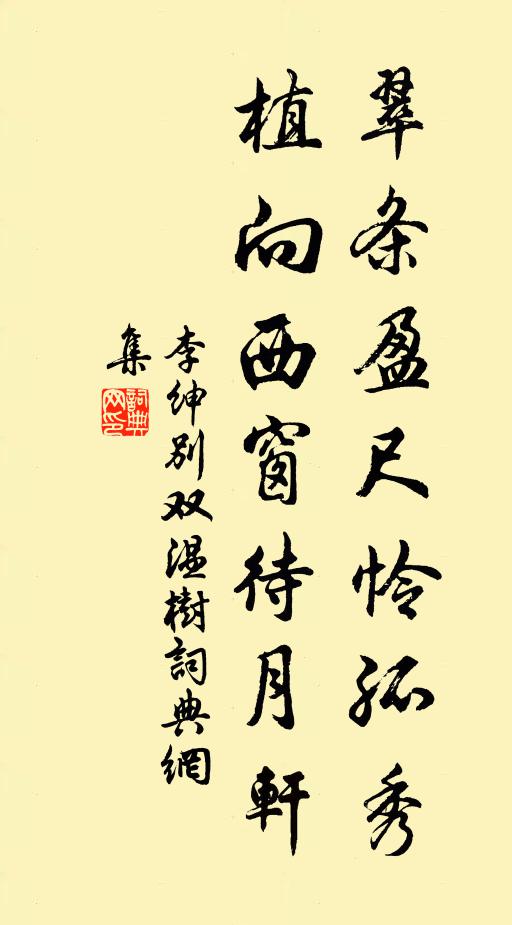 翠条盈尺怜孤秀
植向西窗待月軒
李紳别双温樹詞典網
集
詞典网印